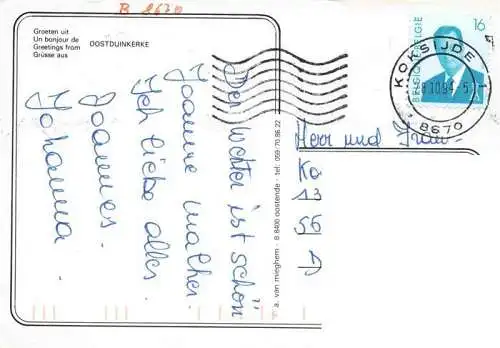 B 8670
Groeten uit
Un bonjour de
Greetings from
Grüsse aus
OOSTDUINKERKE
Der Wetter ist schön
Joanne
Ich liebe alles
Joannes
Johanna
a. van mieghem - B 8400 oostende - tel. 059-70 86 22
16
BELGIQUE-BELGIË
KOKSIJDE
8670
Herr und Frau
Ko
13
56
D